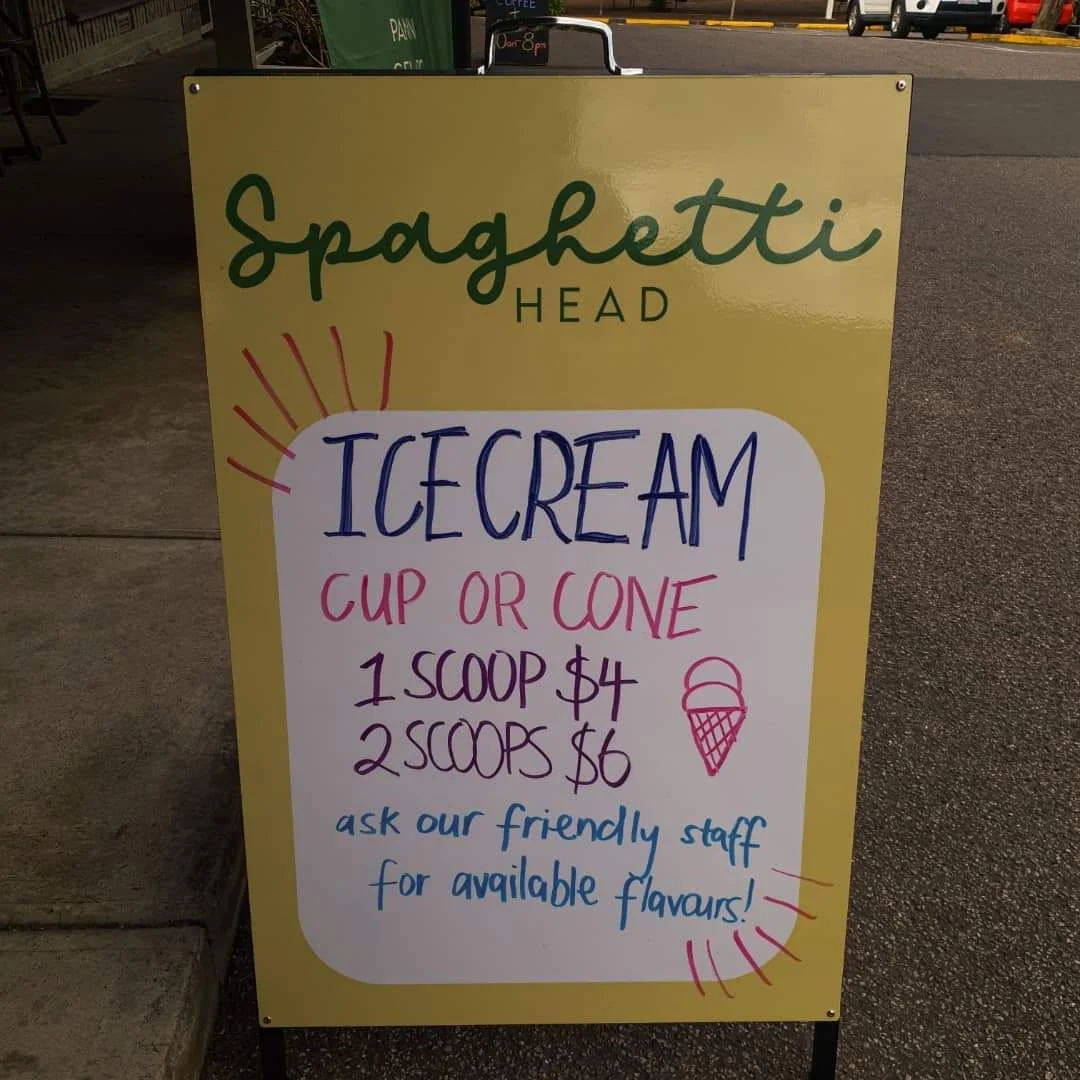 COFFEE
PANN
8pm
Spaghetti
HEAD
ICECREAM
CUP OR CONE
1 SCOOP $4
2 SCOOPS $6
ask our friendly staff
for available flavours!